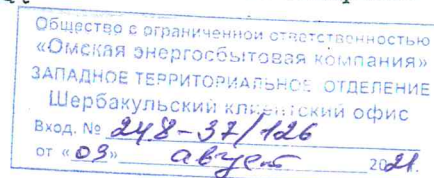 Общество с ограниченной ответственностью
«Омская энергосбытовая компания»
ЗАПАДНОЕ ТЕРРИТОРИАЛЬНОЕ ОТДЕЛЕНИЕ
Шербакульский клиентский офис
Вход. № 248-37/126
от «09» август 2021.